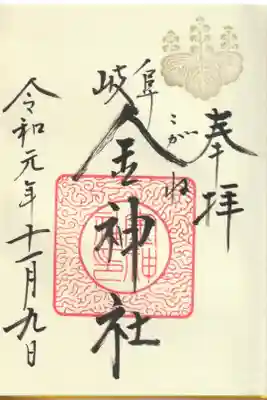 奉拝
岐阜
こがね
金神社
令和元年十一月九日